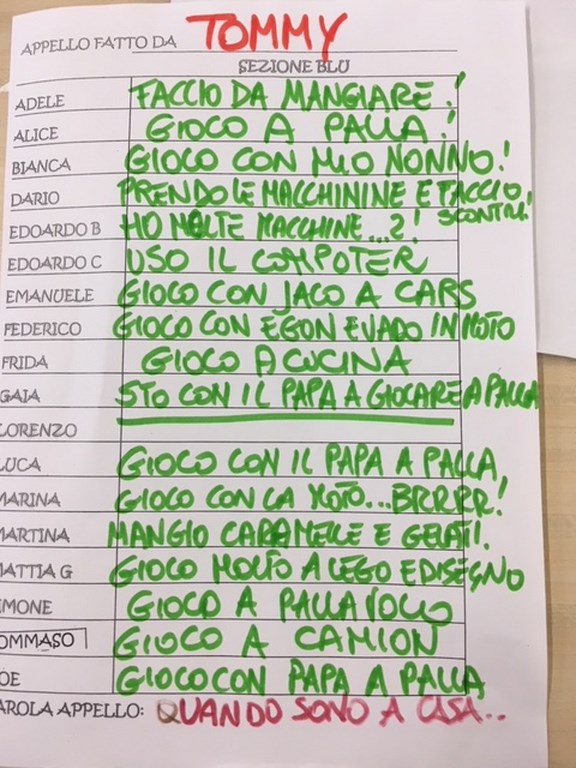 APPELLO FATTO DA TOMMY
SEZIONE BLU
ADELE FACCIO DA MANGIARE!
ALICE GIOCO A PALLA!
BIANCA GIOCO CON MIO NONNO!
DARIO PRENDO LE MACCHININE E FACCIO SCONTRI!
EDOARDO B HO MOLTE MACCHINE...2!
EDOARDO C USO IL COMPOTER
EMANUELE GIOCO CON JACO A CARS
FEDERICO GIOCO CON EGON E VADO IN MOTO
FRIDA GIOCO A CUCINA
GAIA STO CON IL PAPA A GIOCARE A PALLA
LORENZO
LUCA GIOCO CON IL PAPA A PALLA
MARINA GIOCO CON LA MOTO...BRRRR!
MARTINA MANGIO CARAMELLE E GELATI!
MATTIA G GIOCO MOLTO A LEGO E DISEGNO
IMONE GIOCO A PALLAVOLO
OMMASO GIOCO A CAMION
OE GIOCO CON PAPA A PALLA
AROLA APPELLO: QUANDO SONO A CASA..